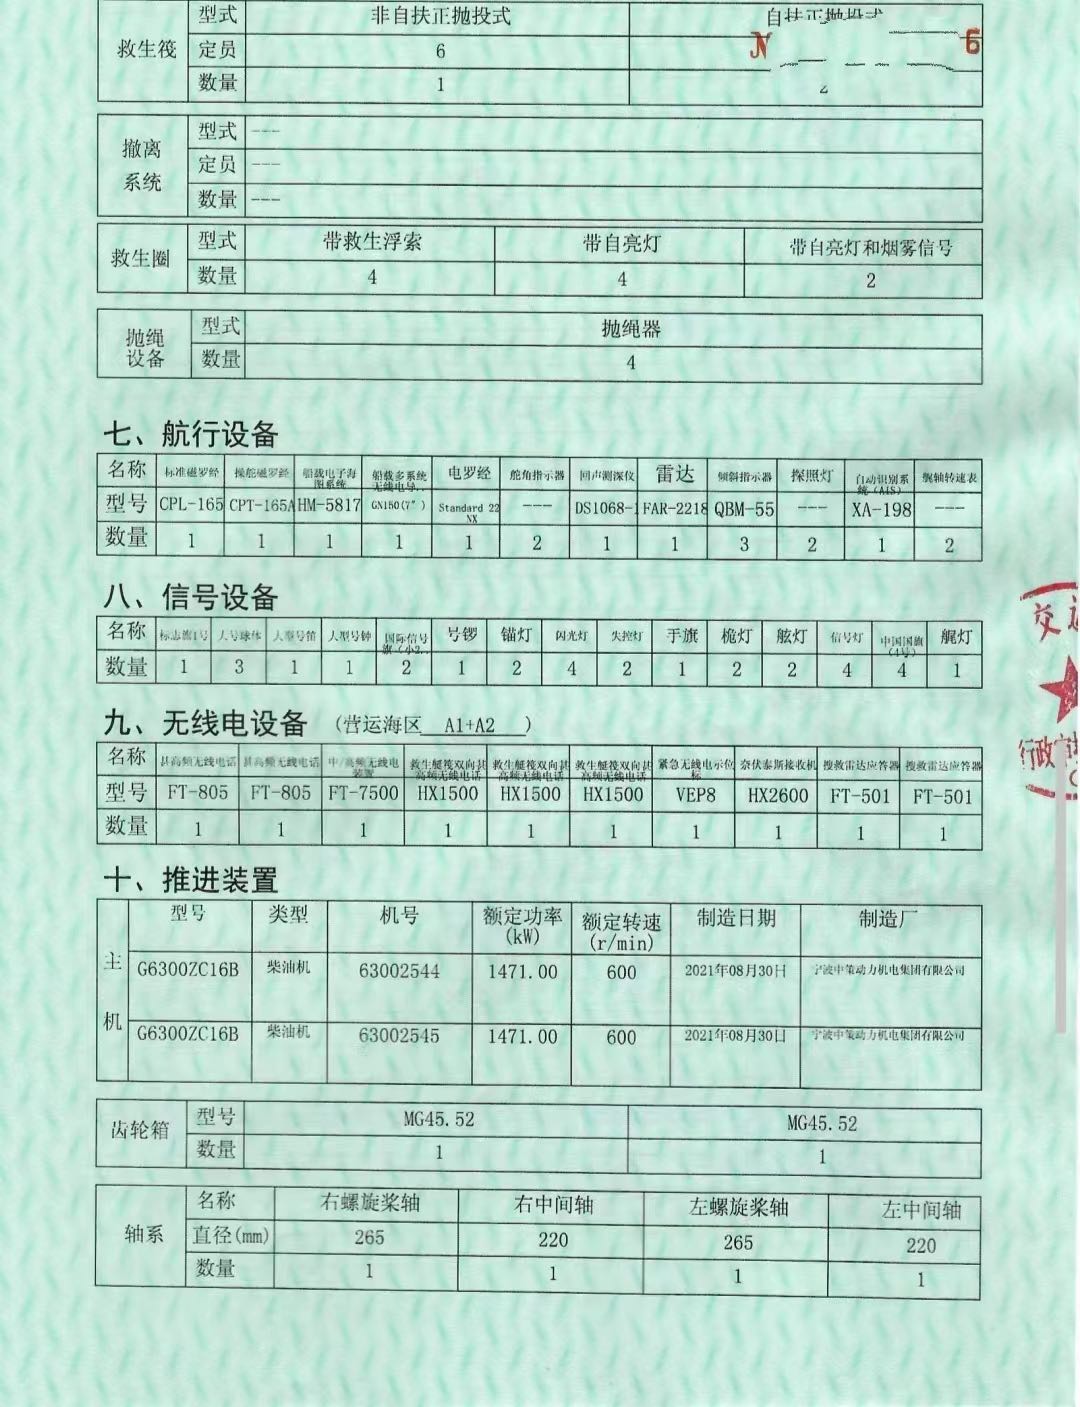 救生筏 型式 非自扶正抛投式 自扶正抛投式
定员 6
数量 1 2
N 6
撤离系统 型式 ---
定员 ---
数量 ---
救生圈 型式 带救生浮索 带自亮灯 带自亮灯和烟雾信号
数量 4 4 2
抛绳设备 型式 抛绳器
数量 4
七、航行设备
名称 标准磁罗经 操舵磁罗经 船载电子海图系统 船载多系统无线电导.. 电罗经 舵角指示器 回声测深仪 雷达 倾斜指示器 探照灯 自动识别系统(AIS) 艉轴转速表
型号 CPL-165 CPT-165A HM-5817 GN150(7") Standard 22 NX --- DS1068-1 FAR-2218 QBM-55 --- XA-198 ---
数量 1 1 1 1 1 2 1 1 3 2 1 2
八、信号设备
名称 标志旗1号 大号球体 大型号笛 大型号钟 国际信号旗(小2.. 号锣 锚灯 闪光灯 失控灯 手旗 桅灯 舷灯 信号灯 中国国旗(4号) 艉灯
数量 1 3 1 1 2 1 2 4 2 1 2 2 4 4 1
九、无线电设备 (营运海区 A1+A2 )
名称 甚高频无线电话 甚高频无线电话 中/高频无线电装置 救生艇筏双向甚高频无线电话 救生艇筏双向甚高频无线电话 救生艇筏双向甚高频无线电话 紧急无线电示位标 奈伏泰斯接收机 搜救雷达应答器 搜救雷达应答器
型号 FT-805 FT-805 FT-7500 HX1500 HX1500 HX1500 VEP8 HX2600 FT-501 FT-501
数量 1 1 1 1 1 1 1 1 1 1
十、推进装置
主机 型号 类型 机号 额定功率(kW) 额定转速(r/min) 制造日期 制造厂
G6300ZC16B 柴油机 63002544 1471.00 600 2021年08月30日 宁波中策动力机电集团有限公司
G6300ZC16B 柴油机 63002545 1471.00 600 2021年08月30日 宁波中策动力机电集团有限公司
齿轮箱 型号 MG45.52 MG45.52
数量 1 1
轴系 名称 右螺旋桨轴 右中间轴 左螺旋桨轴 左中间轴
直径(mm) 265 220 265 220
数量 1 1 1 1
交
行政审